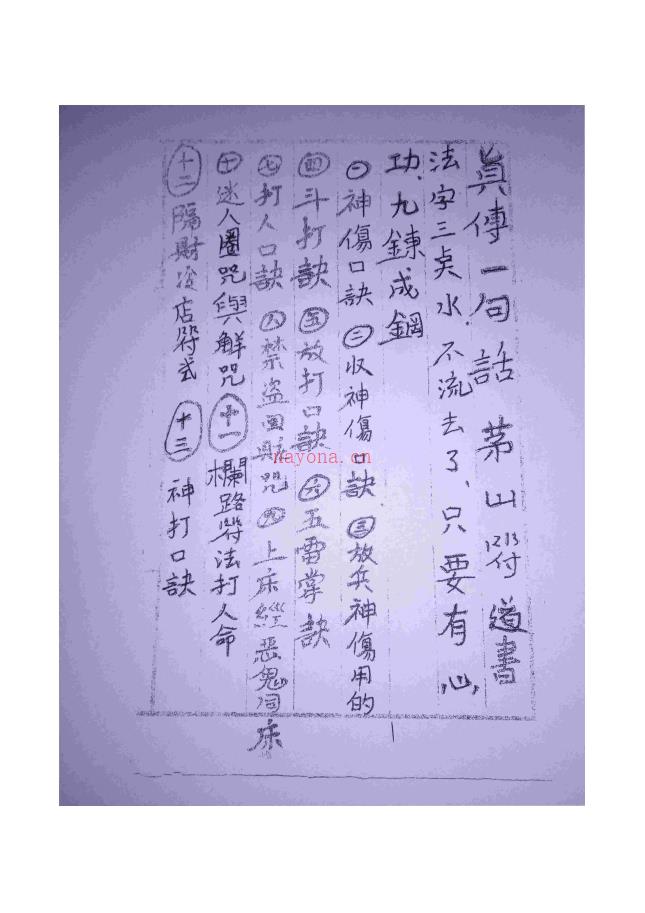 眞傳一句話 茅山符 道書
法字三点水.不流去了、只要有心,
功、九鍊成鋼
㊀神傷口訣 ㊁收神傷口訣 ㊂放兵神傷用的
㊃斗打訣 ㊄放打口訣 ㊅五雷掌訣
㊆打人口訣 ㊇禁盜回財咒 ㊈上床經惡鬼同床
㊉迷人圈咒與解咒 十一 欄路符法打人命
十二 隔財 店符式 十三 神打口訣
nayona.cn